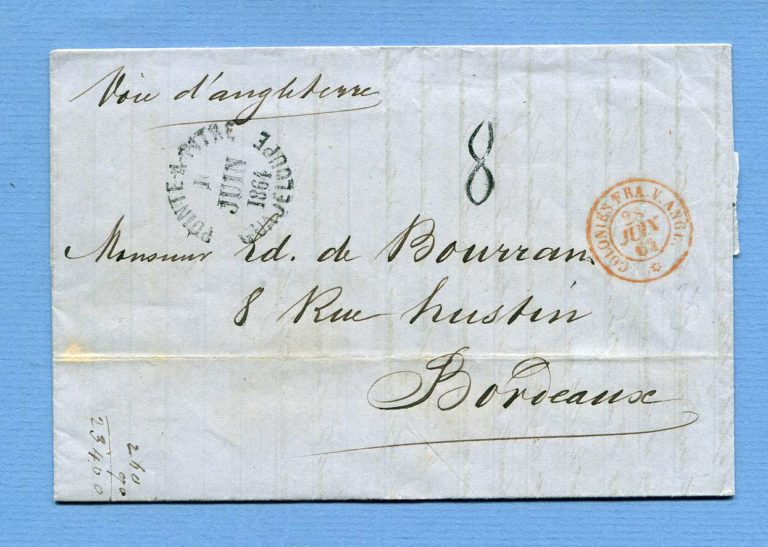 Voie d'angleterre
POINTE-A-PITRE
JUIN
1864
GUADELOUPE
8
COLONIES FRA. V. ANGL.
28
JUIN
64
Monsieur Ed. de Bourran
8 Rue hustin
Bordeaux
260
90
23400